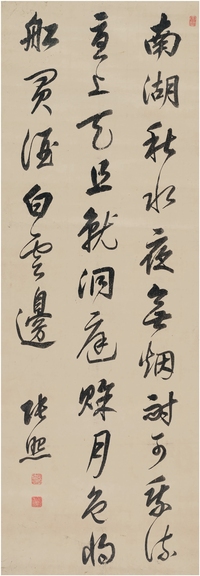 南湖秋水夜無烟耐可乘流
直上天且就洞庭賒月色將
船買酒白雲邊
張照